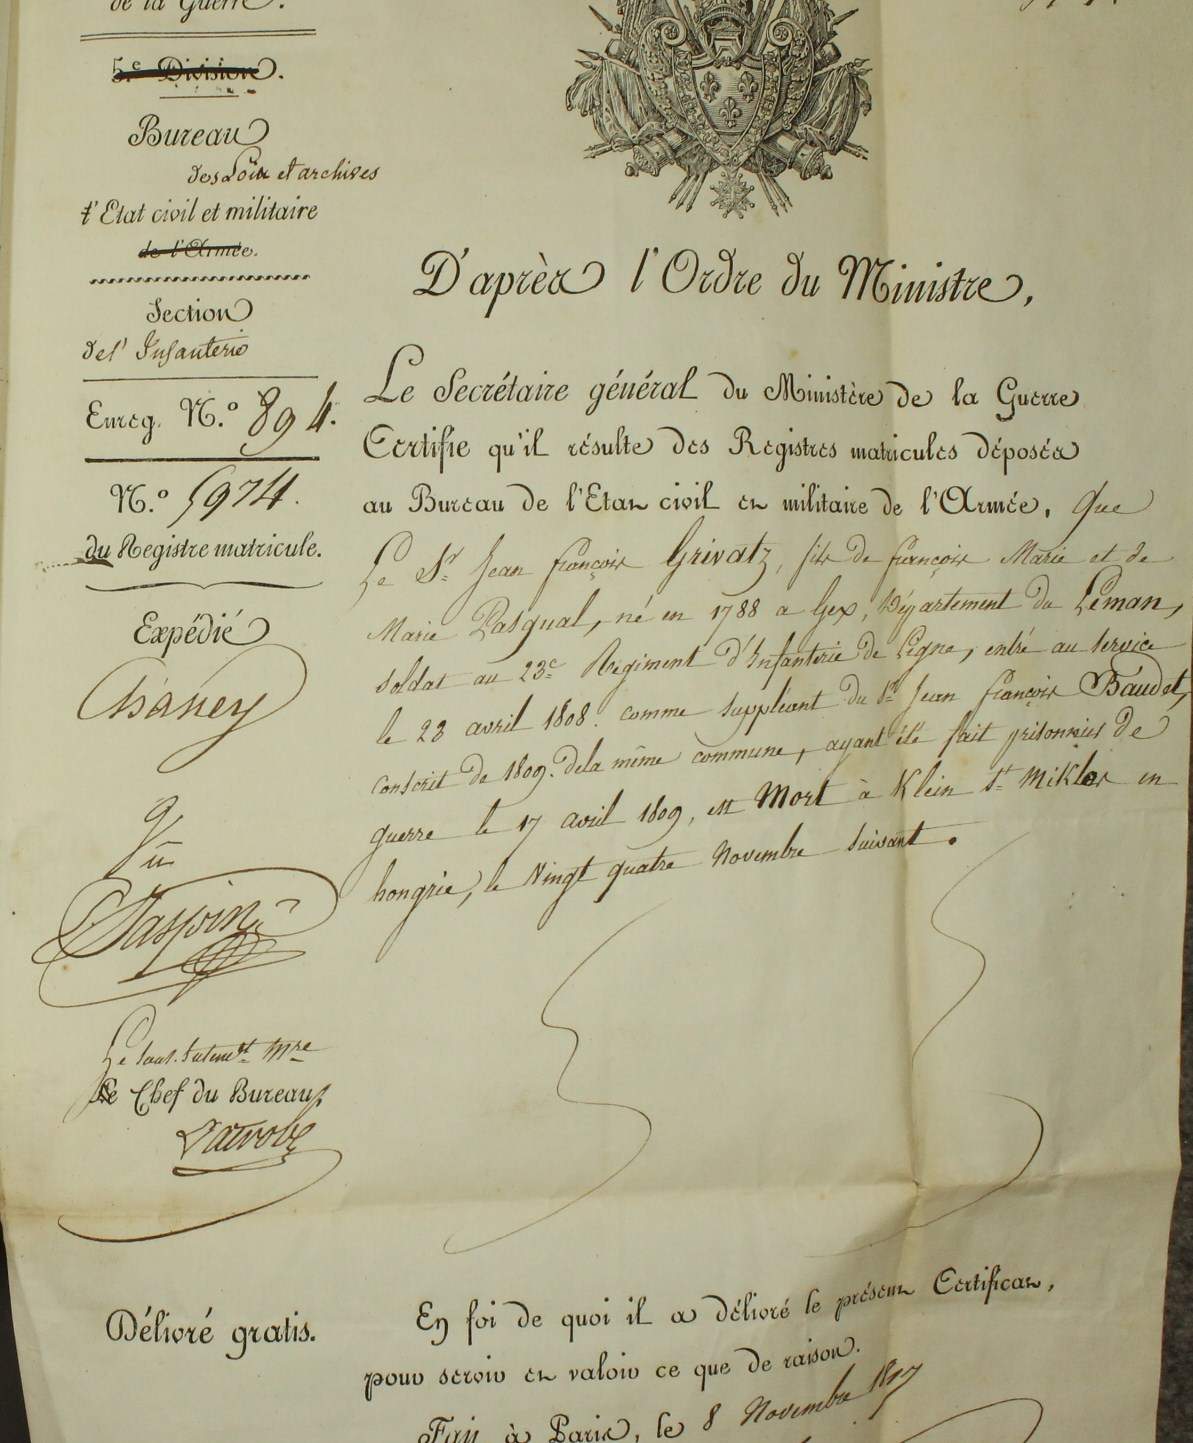 de la Guerre.
5.e Division.
Bureau
des Loix et archives
l'Etat civil et militaire
de l'Armée.
Section
del' Infanterie
Enreg. N.o 894.
N.o 5974.
du Registre matricule.
Expédié
Vu
Le Sous-Intend.t Mre
Le Chef du Bureau,
Délivré gratis.
D'après l'Ordre du Ministre,
Le Secrétaire général du Ministère de la Guerre
Certifie qu'il résulte des Registres matricules déposés
au Bureau de l'Etat civil et militaire de l'Armée, que
Le Sr. Jean françois Grivatz, fils de françois Marie et de
Marie Pasqual, né en 1788 a Gex, Département du Léman,
soldat au 23e Régiment d'Infanterie de Ligne, entré au service
le 23 avril 1808. comme suppléant du Sr. Jean françois Baudet,
conscrit de 1809. dela même commune, ayant été fait prisonnier de
guerre le 17 avril 1809, est Mort à Klein St. Miklos en
hongrie, le Vingt quatre Novembre suivant.
En foi de quoi il a délivré le présent Certificat,
pour servir et valoir ce que de raison.
Fait à Paris, le 8 Novembre 1817